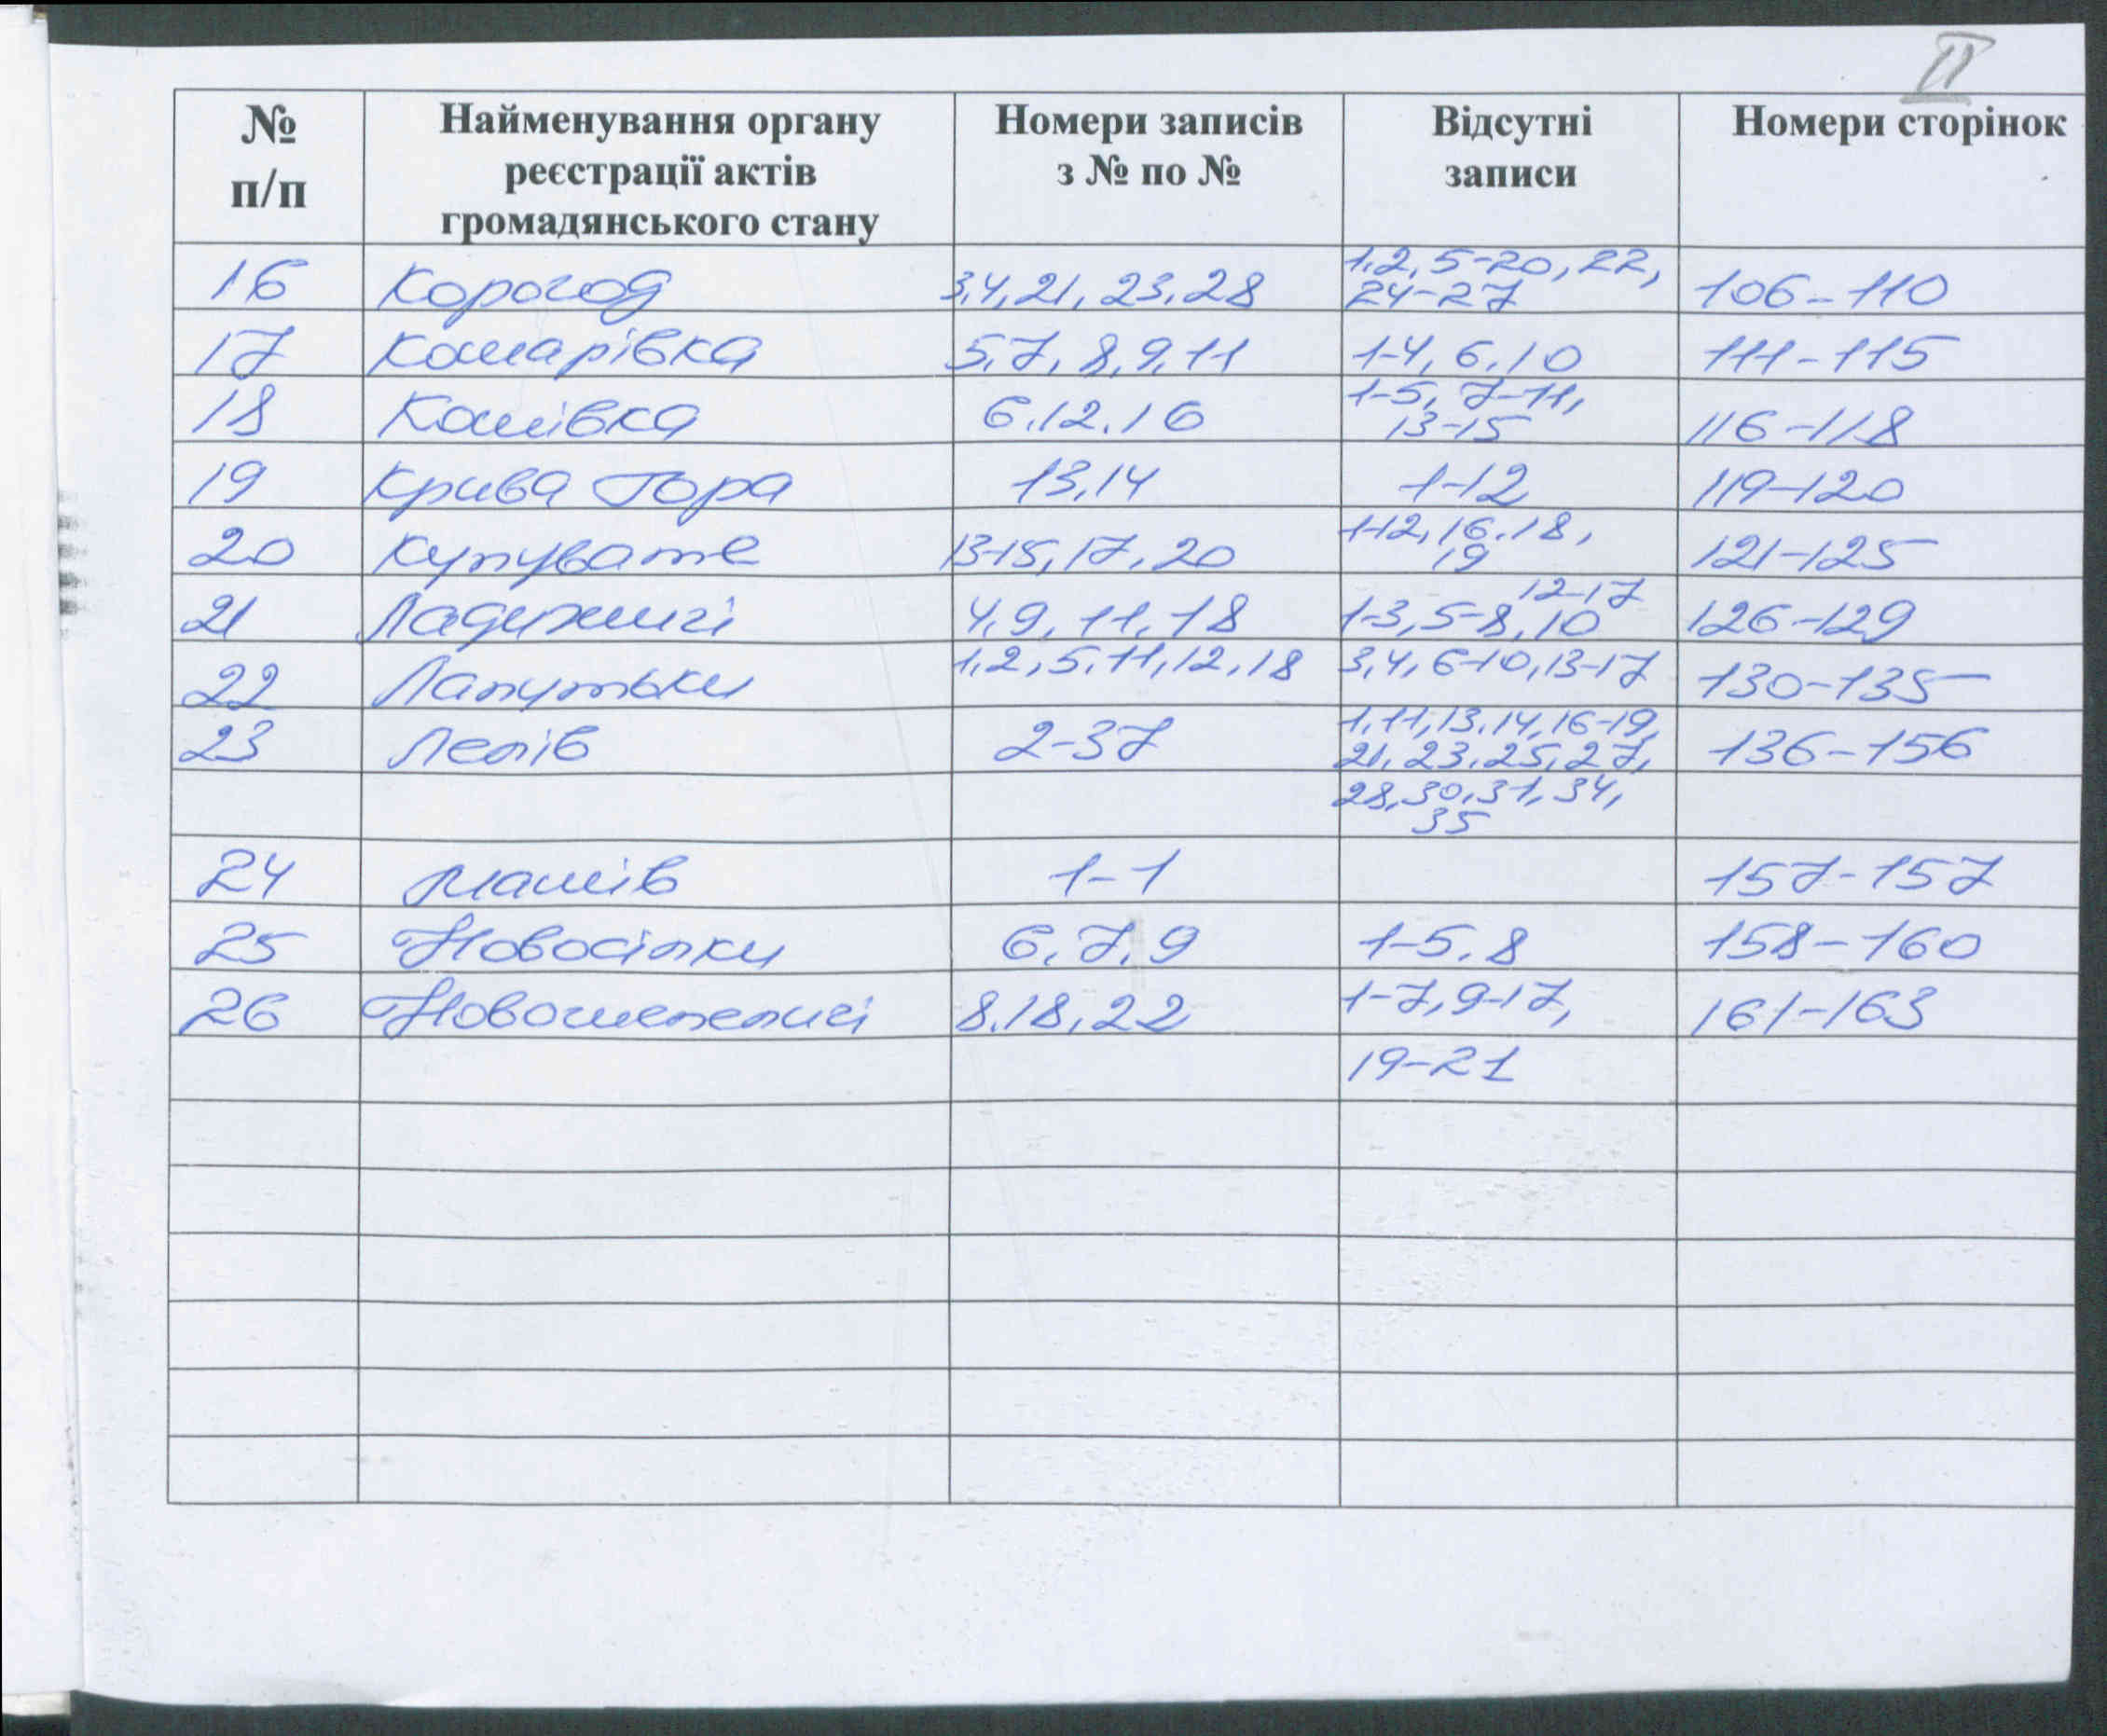 II
№ п/п Найменування органу реєстрації актів громадянського стану Номери записів з № по № Відсутні записи Номери сторінок
16 Корогод 3,4,21,23,28 1,2,5-20,22, 24-27 106-110
17 Комарівка 5,7,8,9,11 1-4,6,10 111-115
18 Кошівка 6,12,16 1-5,7-11, 13-15 116-118
19 Крива Гора 13,14 1-12 119-120
20 Купувате 13-15,17,20 1-12,16,18, 19 121-125
21 Ладижичі 4,9,11,18 1-3,5-8,10 12-17 126-129
22 Лапутьки 1,2,5,11,12,18 3,4,6-10,13-17 130-135
23 Лелів 2-37 1,11,13,14,16-19, 21,23,25,27, 136-156
28,30,31,34, 35
24 Машів 1-1 157-157
25 Новосілки 6,7,9 1-5,8 158-160
26 Новошепеличі 8,18,22 1-7,9-17, 161-163
19-21